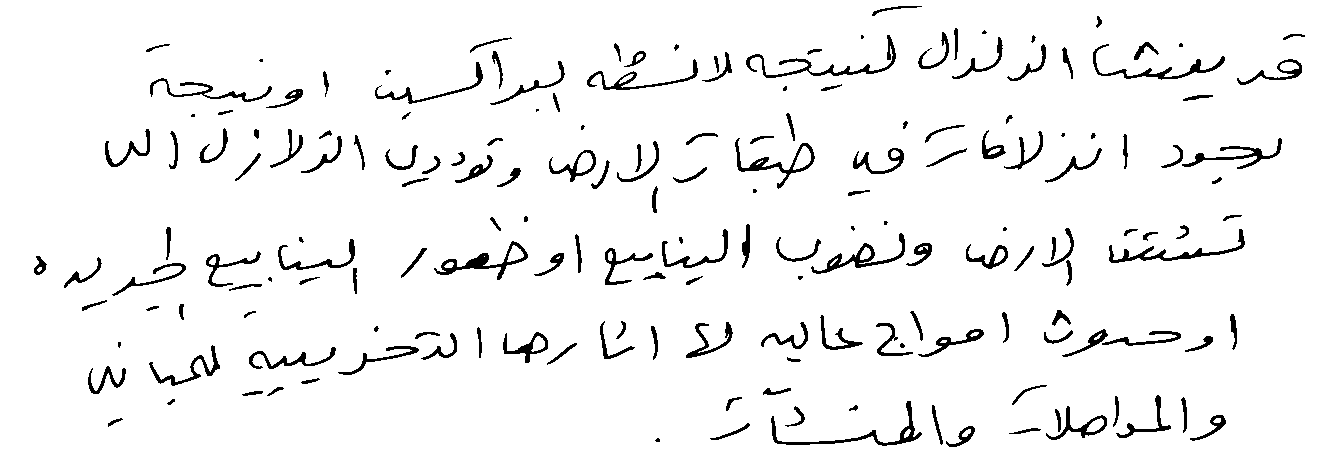 قد ينشأ الزلزال كنتيجه لانشطه البراكين او نتيجة
لوجود انزلاقات في طبقات الارض وتؤدي الزلازل الى
تشقق الارض ونضوب الينابيع او ظهور الينابيع الجديده
او حدوث امواج عاليه لا اثارها التخريبية للمباني
والمواصلات والمنشآت .